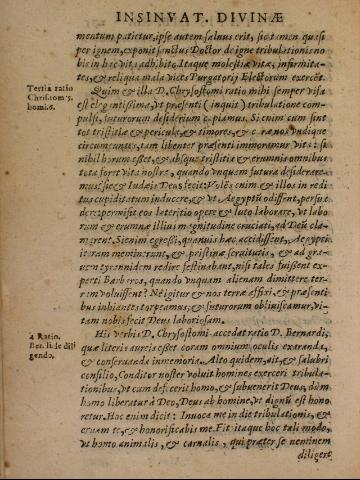 INSINVAT. DIVINÆ
mentum patietur, ipse autem saluus erit, sic tamen quasi
per ignem, exponit sanctus Doctor de igne tribulationis no
bis in hac vita adhibito. Itaque molestiæ vitæ, infirmita-
tes, & reliqua mala vices Purgatorij Electorum exercet.
Tertia ratio
Quin & illa D. Chrysostomi ratio mihi semper visa
est elegantissima, vt præsenti (inquit) tribulatione com-
pulsi, futurorum desiderium capiamus. Si enim cum sint
tot tristitiæ & pericula, & timores, & undique
tam libenter præsenti immoramur vitæ: si
nihil horum esset, & absque tristitia & erumnis omnibus
tota foret vita nostra, quando vnquam futura desiderare-
mus? sic & Iudæis Deus fecit: Volēs enim & illos in redi
tus cupiditatem inducere, & vt Ægyptū odissent, persæ
dere: permisit eos lateritio opere & luto laborare, vt labo
rum & erumnæ illius magnitudine cruciati, ad Deū cla-
marent. Si enim egressi, quamuis hæc accidissent, Aegypti
iterum meminerunt, & pristinæ seruitutis, & ad gra-
uem tyrannidem redire festinabant, nisi tales fuissent ex-
perti Barbaros, quando vnquam alienam dimittere ter-
ram voluissent? Ne igitur & nos terræ affixi, & præsenti
bus inhiantes torpeamus, & futurorum obliuiscamur, vi-
tam nobis fecit Deus laboriosam.
4 Ratio.
Ber. li. de dili
gendo.
His verbis D. Chrysostomi accedat ratio D. Bernardi,
quæ literis aureis esset coram omnium oculis exaranda,
& conseruanda in memoria. Alto quidem, ait, & salubri
consilio, Conditor noster voluit homines exerceri tribula-
tionibus, vt cum defecerit homo, & subuenerit Deus, dum
homo liberatur à Deo, Deus ab homine, vt dignū est hono
retur. Hoc enim dicit: Inuoca me in die tribulationis, &
eruam te, & honorificabis me. Fit itaque hoc tali modo,
vt homo animalis, & carnalis, qui præter se neminem
diligere